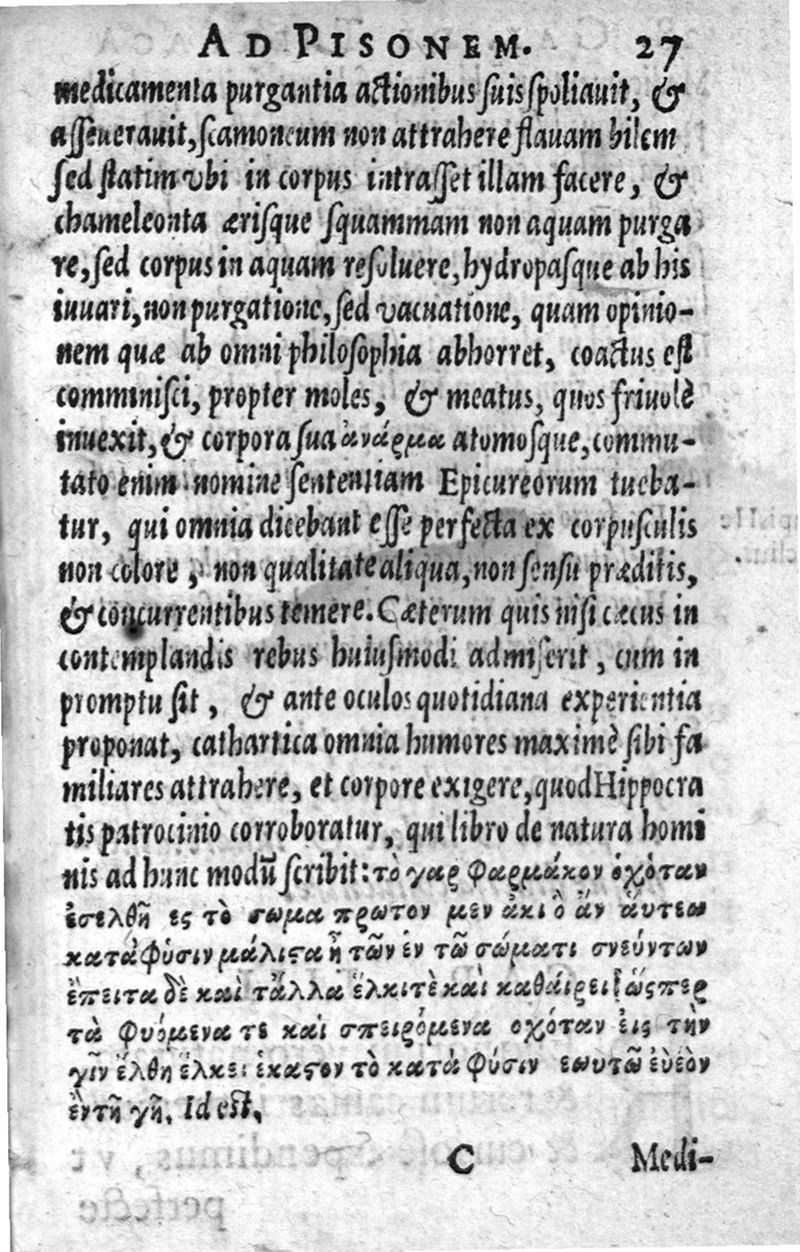 AD PISONEM. 27
medicamenta purgantia actionibus suis spoliauit, &
asseuerauit, scamoneum non attrahere flauam bilem
sed statim vbi in corpus intrasset illam facere, &
chameleonta ærisque squammam non aquam purga
re, sed corpus in aquam resoluere, hydropasque ab his
iuuari, non purgatione, sed vacuatione, quam opinio-
nem quæ ab omni philosophia abhorret, coactus est
comminisci, propter moles, & meatus, quos friuolè
inuexit, & corpora sua ἀνάρμα atomosque, commu-
tato enim nomine sententiam Epicureorum tueba-
tur, qui omnia dicebant esse perfecta ex corpusculis
non colore, non qualitate aliqua, non sensu præditis,
& concurrentibus temere. Cæterum quis nisi cæcus in
contemplandis rebus huiusmodi admiserit, cum in
promptu sit, & ante oculos quotidiana experientia
proponat, cathartica omnia humores maximè sibi fa
miliares attrahere, et corpore exigere, quod Hippocra
tis patrocinio corroboratur, qui libro de natura homi
nis ad hunc modũ scribit: τὸ γαρ φαρμάκον ὁχὸταν
ἐσελθῆ ες τὸ σωμα πρωτον μεν ἀκι ὁ ἀν ἀυτεω
κατὰ φύσιν μάλιςα ἦ τῶν ἐν τῶ σώματι σνεύντων
ἐπειτα δὲ καὶ τἄλλα ἐλκιτὲ καὶ καθάιρει ὡςπερ
τὰ φυόμενα τε καὶ σπειρόμενα οχόταν ἐις τὴν
γῖν ἐλθη ἐλκει ἑκαςον τὸ κατὰ φύσιν εωυτῶ ἐνέον
ἐντῆ γῆ. Id est,
C Medi-